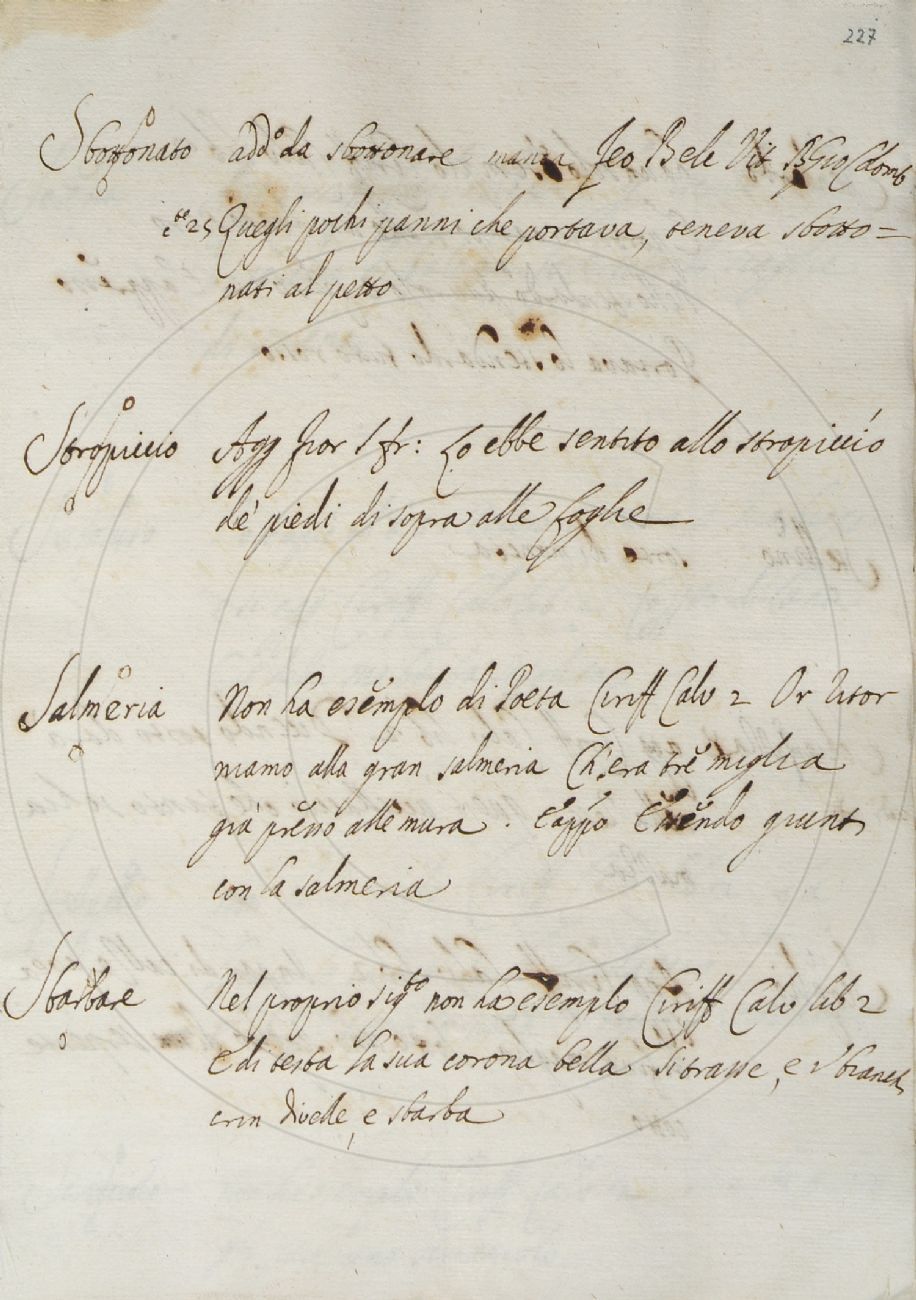 227
Sbottonato add.o da sbottonare manca Feo Belc Vit B Gio Colomb
c.te 25 Quegli pochi panni che portava, teneva sbotto=
nati al petto
Stropiccio Agg fior S fr: Lo ebbe sentito allo stropiccío
de' piedi di sopra alle foglie
Salmeria Non ha esempio di Poeta Ciriff Calv 2 Or Ritor
niamo alla gran salmeria Ch'era tre miglia
già presso alle mura. E appo Essendo giunt
con la salmeria
Sbarbare Nel proprio sig.to non ha esempio Ciriff Calv lib 2
E di testa la sua corona bella si trasse, e i bianch
crin divelle, e sbarba